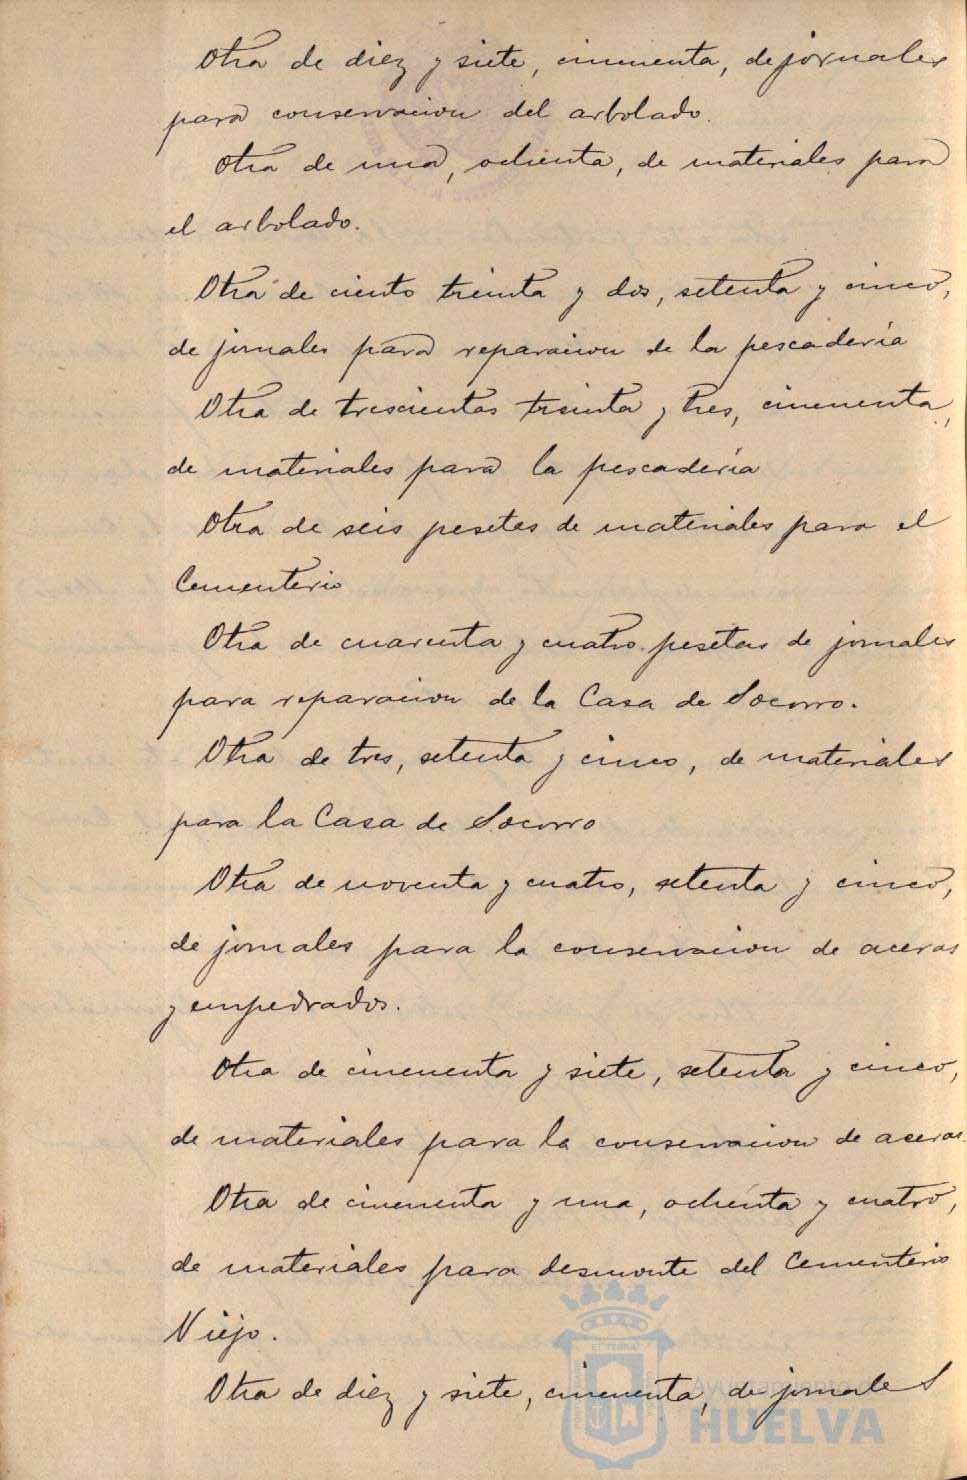 Otra de diez y siete, cincuenta, de jornales
para conservacion del arbolado.
Otra de una, ochenta, de materiales para
el arbolado.
Otra de ciento treinta y dos, setenta y cinco,
de jornales para reparacion de la pescadería
Otra de trescientas treinta y tres, cincuenta,
de materiales para la pescadería
Otra de seis pesetas de materiales para el
Cementerio
Otra de cuarenta y cuatro pesetas de jornales
para reparacion de la Casa de Socorro.
Otra de tres, setenta y cinco, de materiales
para la Casa de Socorro
Otra de noventa y cuatro, setenta y cinco,
de jornales para la conservacion de aceras
y empedrados.
Otra de cincuenta y siete, setenta y cinco,
de materiales para la conservacion de aceras.
Otra de cincuenta y una, ochenta y cuatro,
de materiales para desmonte del Cementerio
Viejo.
Otra de diez y siete, cincuenta, de jornales
Ayuntamiento de
HUELVA